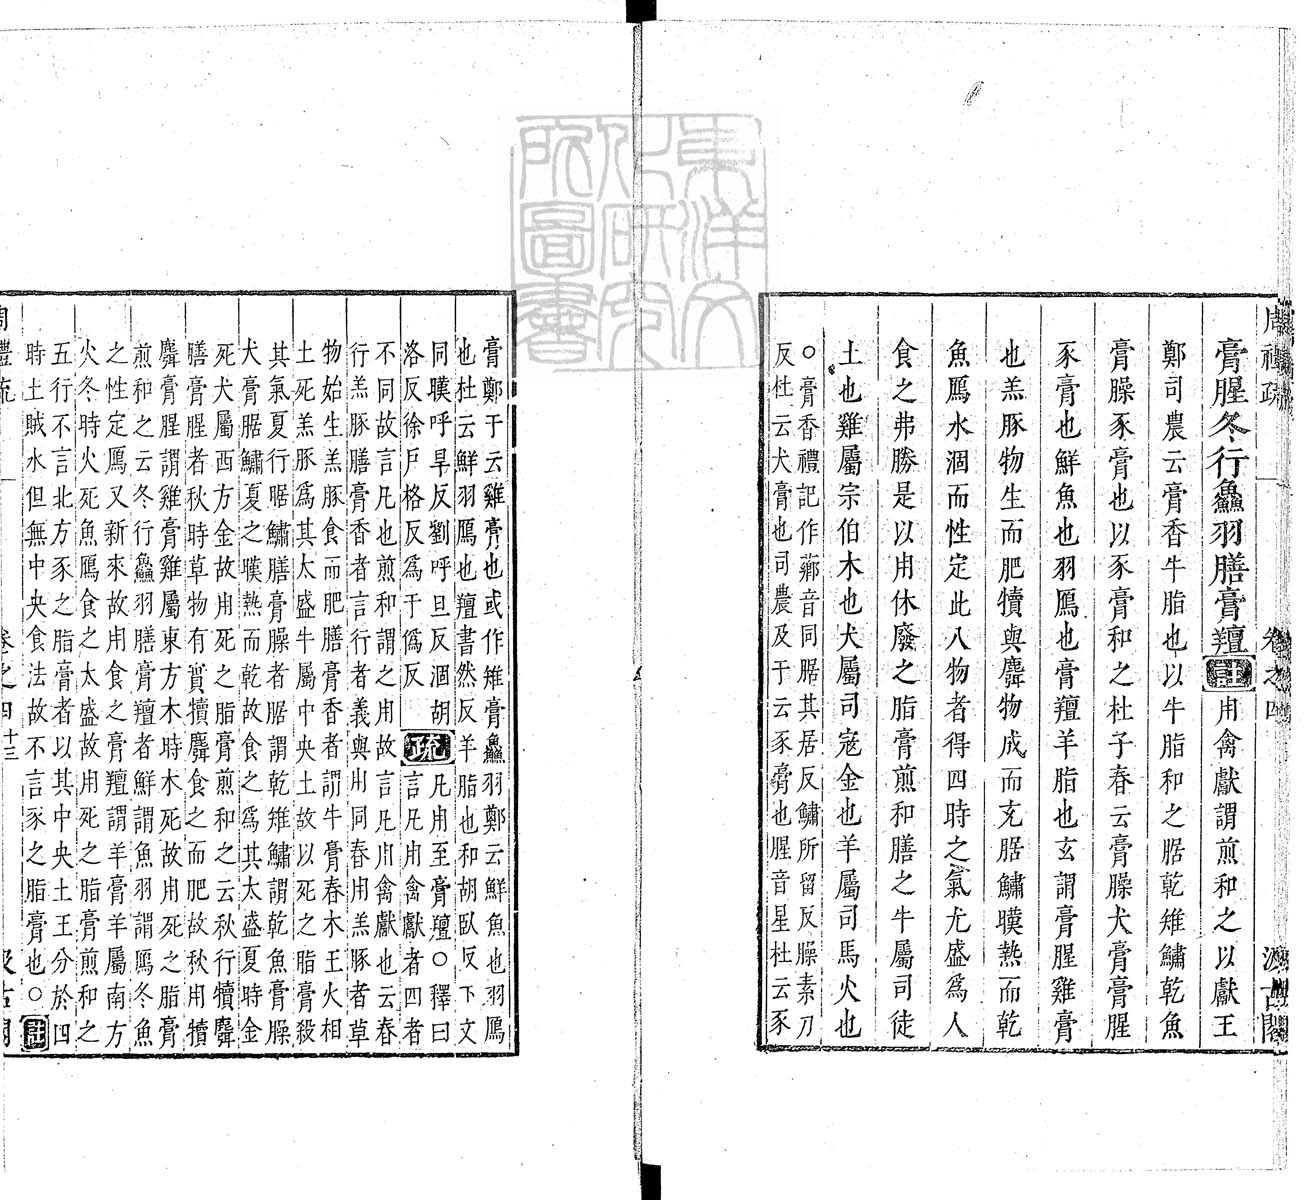 周禮疏 卷之四 汲古閣
膏腥冬行鱻羽膳膏羶註用禽獻謂煎和之以獻王
鄭司農云膏香牛脂也以牛脂和之腒乾雉鱐乾魚
膏臊豕膏也以豕膏和之杜子春云膏臊犬膏膏腥
豕膏也鮮魚也羽鴈也膏羶羊脂也玄謂膏腥雞膏
也羔豚物生而肥犢與麛物成而充腒鱐暵熱而乾
魚鴈水涸而性定此八物者得四時之氣尤盛爲人
食之弗勝是以用休廢之脂膏煎和膳之牛屬司徒
土也雞屬宗伯木也犬屬司寇金也羊屬司馬火也
○膏香禮記作薌音同腒其居反鱐所留反臊素刀
反杜云犬膏也司農及于云豕膏也腥音星杜云豕
膏鄭于云雞膏也或作雉膏鱻羽鄭云鮮魚也羽鴈
也杜云鮮羽鴈也羶書然反羊脂也和胡臥反下文
同暵呼旱反劉呼旦反涸胡
洛反徐戶格反爲于僞反
疏凡用至膏羶○釋曰
言凡用禽獻者四者
不同故言凡也煎和謂之用故言凡用禽獻也云春
行羔豚膳膏香者言行者義與用同春用羔豚者草
物始生羔豚食而肥膳膏香者謂牛膏春木王火相
土死羔豚爲其太盛牛屬中央土故以死之脂膏殺
其氣夏行腒鱐膳膏臊者腒謂乾雉鱐謂乾魚膏臊
犬膏腒鱐夏之暵熱而乾故食之爲其太盛夏時金
死犬屬西方金故用死之脂膏煎和之云秋行犢麛
膳膏腥者秋時草物有實犢麛食之而肥故秋用犢
麛膏腥謂雞膏雞屬東方木時木死故用死之脂膏
煎和之云冬行鱻羽膳膏羶者鮮謂魚羽謂鴈冬魚
之性定鴈又新來故用食之膏羶謂羊膏羊屬南方
火冬時火死魚鴈食之太盛故用死之脂膏煎和之
五行不言北方豕之脂膏者以其中央土王分於四
時土賊水但無中央食法故不言豕之脂膏也○註
周禮疏 卷之四 十三 汲古閣
東洋文化研究所圖書